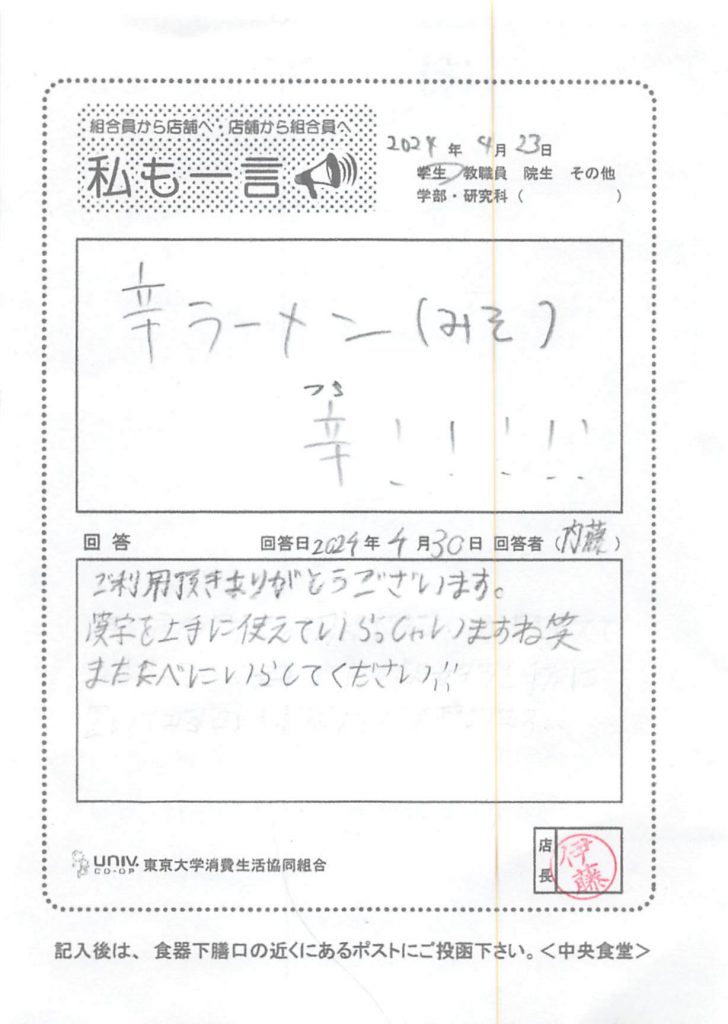 組合員から店舗へ・店舗から組合員へ
私も一言
2024年4月23日
学生 教職員 院生 その他
学部・研究科（　　　）
辛ラーメン(みそ)
つら
辛！！！！！
回答 回答日2024年4月30日 回答者（内藤）
ご利用頂きありがとうございます。
漢字を上手に使えていらっしゃいますね笑
またたべにいらしてください!!
UNIV. CO-OP 東京大学消費生活協同組合
店長 伊藤
記入後は、食器下膳口の近くにあるポストにご投函下さい。＜中央食堂＞